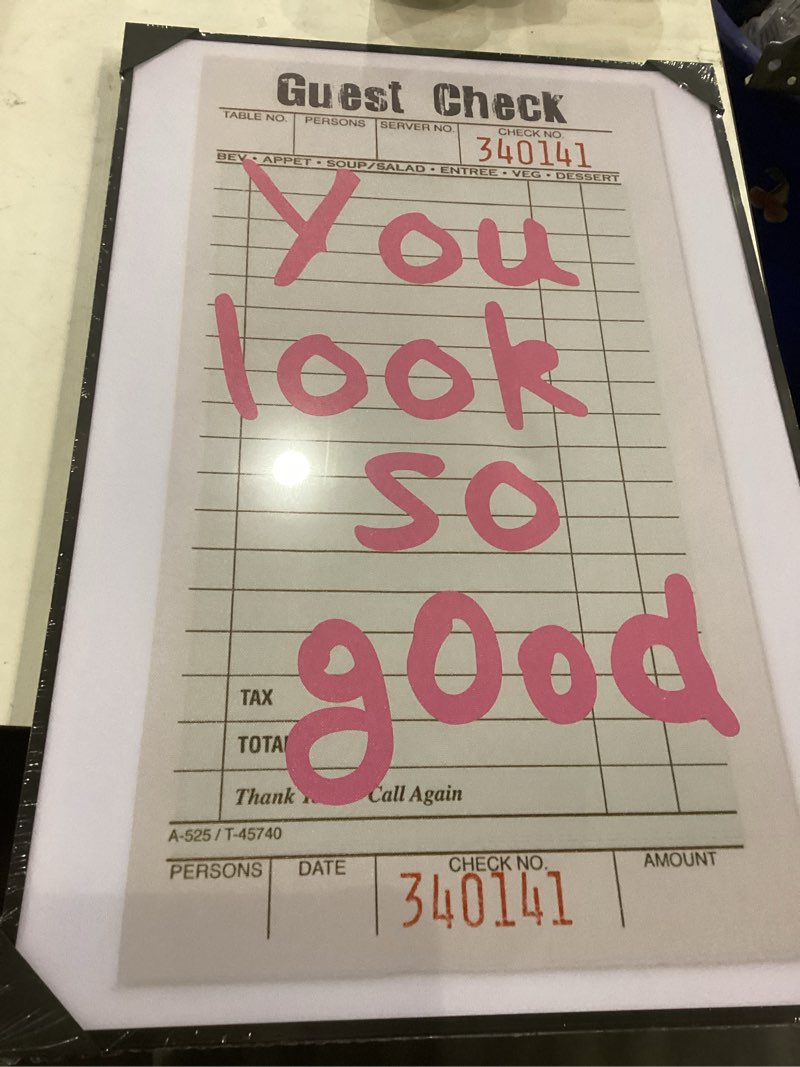 Guest Check
TABLE NO. PERSONS SERVER NO. CHECK NO.
340141
BEV • APPET • SOUP/SALAD • ENTREE • VEG • DESSERT
You
look
so
good
TAX
TOTAL
Thank Call Again
A-525 / T-45740
PERSONS DATE CHECK NO. AMOUNT
340141